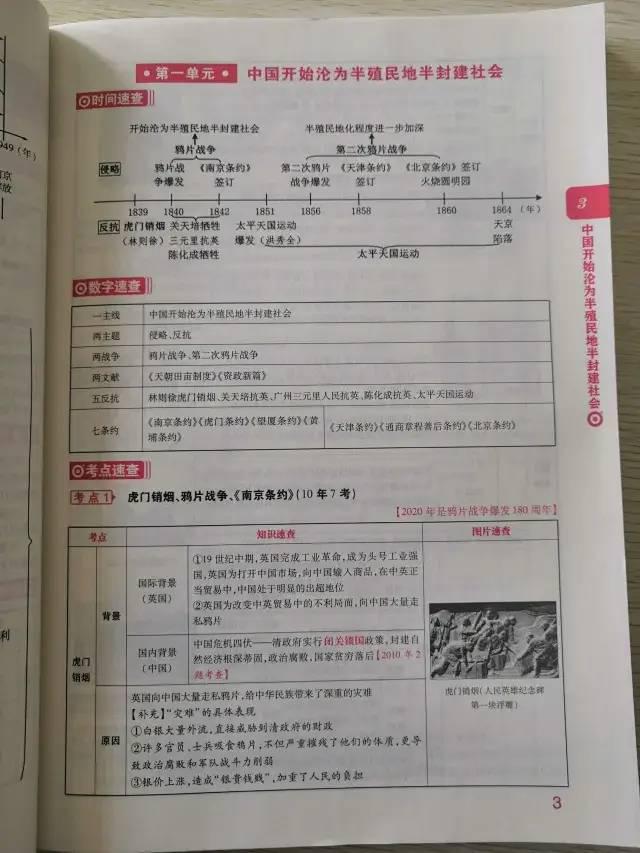 949（年）
第一单元 中国开始沦为半殖民地半封建社会
时间速查
开始沦为半殖民地半封建社会 半殖民地化程度进一步加深
鸦片战争 第二次鸦片战争
侵略 鸦片战 《南京条约》 第二次鸦片 《天津条约》 《北京条约》签订
争爆发 签订 战争爆发 签订 火烧圆明园
1839 1840 1842 1851 1856 1858 1860 1864 （年）
反抗 虎门销烟 关天培牺牲 太平天国运动 天京
（林则徐） 三元里抗英 爆发（洪秀全） 陷落
陈化成牺牲 太平天国运动
数字速查
一主线 中国开始沦为半殖民地半封建社会
两主题 侵略、反抗
两战争 鸦片战争、第二次鸦片战争
两文献 《天朝田亩制度》《资政新篇》
五反抗 林则徐虎门销烟、关天培抗英、广州三元里人民抗英、陈化成抗英、太平天国运动
七条约 《南京条约》《虎门条约》《望厦条约》《黄
埔条约》
《天津条约》《通商章程善后条约》《北京条约》
考点速查
考点1 虎门销烟、鸦片战争、《南京条约》（10年7考）
【2020年是鸦片战争爆发180周年】
考点 知识速查 图片速查
虎门
销烟
背景
国际背景
（英国）
①19世纪中期，英国完成工业革命，成为头号工业强
国，英国为打开中国市场，向中国输入商品，在中英正
当贸易中，中国处于明显的出超地位
②英国为改变中英贸易中的不利局面，向中国大量走
私鸦片
国内背景
（中国）
中国危机四伏——清政府实行闭关锁国政策，封建自
然经济根深蒂固，政治腐败，国家贫穷落后【2010年2
题考查】
原因
英国向中国大量走私鸦片，给中华民族带来了深重的灾难
【补充】“灾难”的具体表现
①白银大量外流，直接威胁到清政府的财政
②许多官员、士兵吸食鸦片，不但严重摧残了他们的体质，更导
致政治腐败和军队战斗力削弱
③银价上涨，造成“银贵钱贱”，加重了人民的负担
虎门销烟（人民英雄纪念碑
第一块浮雕）
3
中国开始沦为半殖民地半封建社会
3